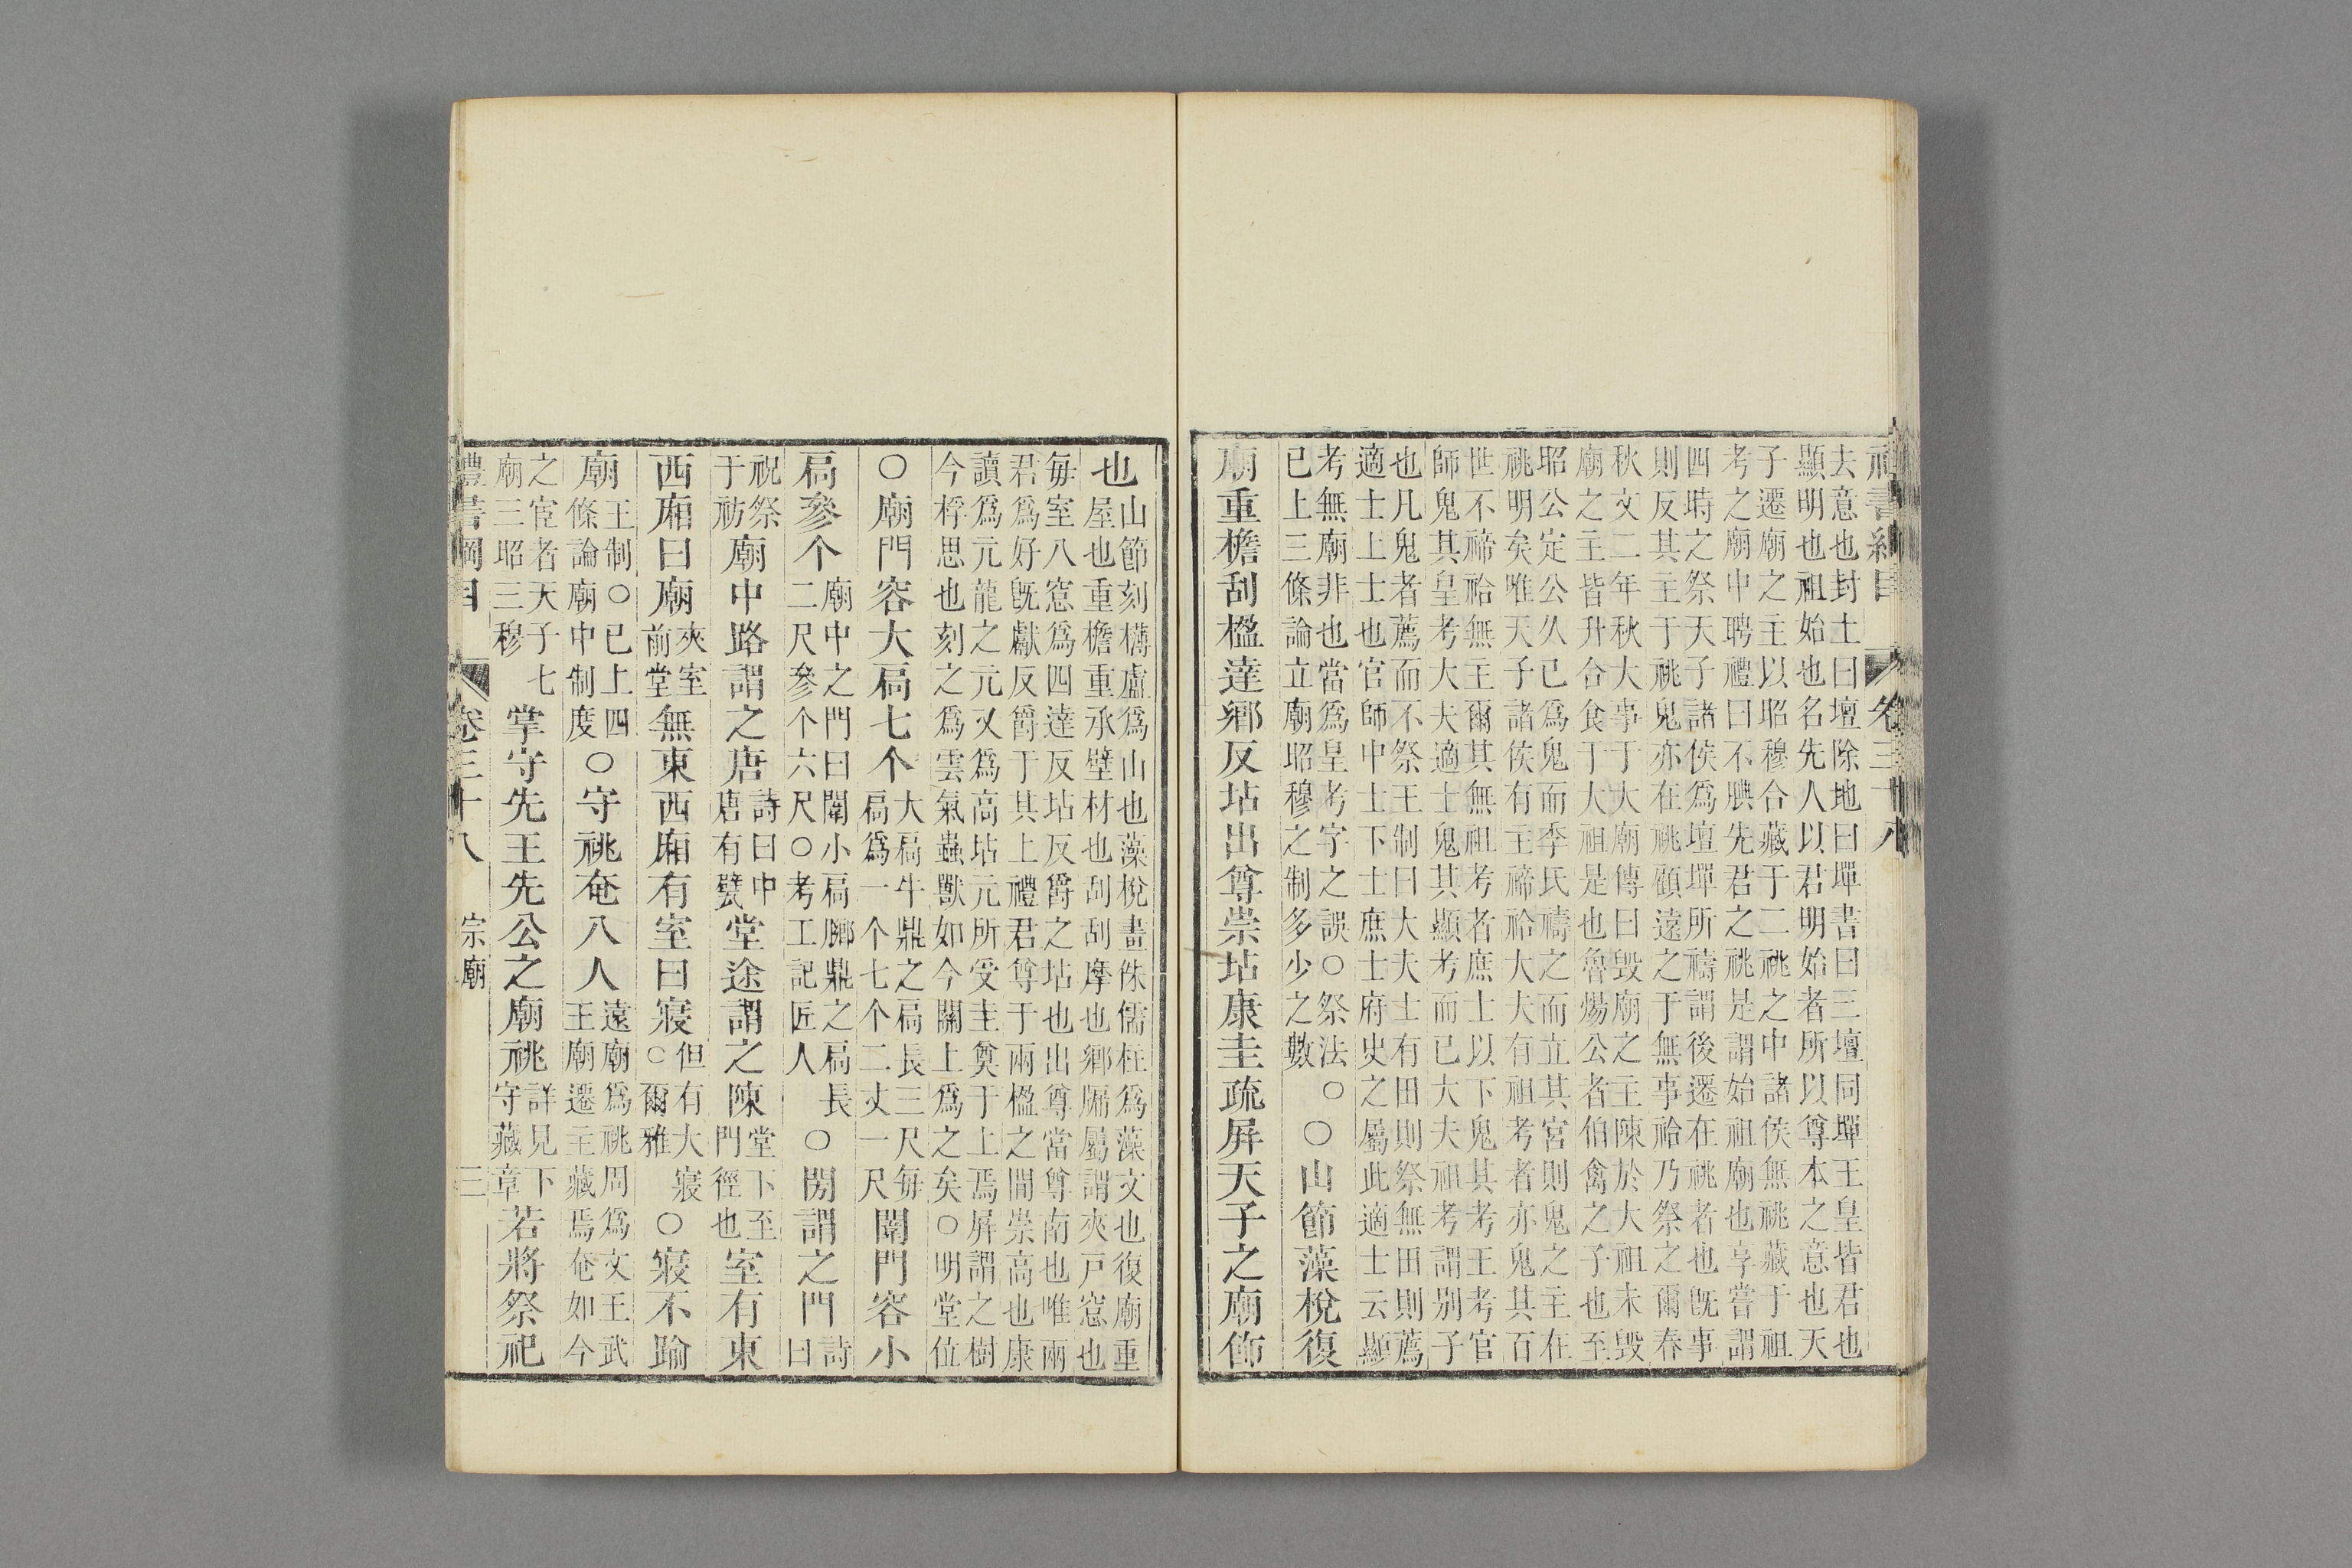 禮書綱目 卷三十八
去意也封土曰壇除地曰墠書曰三壇同墠王皇皆君也
顯明也祖始也名先人以君明始者所以尊本之意也天
子遷廟之主以昭穆合藏于二祧之中諸侯無祧藏于祖
考之廟中聘禮曰不腆先君之祧是謂始祖廟也享嘗謂
四時之祭天子諸侯爲壇墠所禱謂後遷在祧者也既事
則反其主于祧鬼亦在祧顧遠之于無事祫乃祭之爾春
秋文二年秋大事于大廟傳曰毀廟之主陳於大祖未毀
廟之主皆升合食于大祖是也魯煬公者伯禽之子也至
昭公定公久已爲鬼而季氏禱之而立其宮則鬼之主在
祧明矣唯天子諸侯有主禘祫大夫有祖考者亦鬼其百
世不禘祫無主爾其無祖考者庶士以下鬼其考王考官
師鬼其皇考大夫適士鬼其顯考而已大夫祖考謂别子
也凡鬼者薦而不祭王制曰大夫士有田則祭無田則薦
適士上士也官師中士下士庶士府史之屬此適士云顯
考無廟非也當爲皇考字之誤○祭法○
已上三條論立廟昭穆之制多少之數
○山節藻梲復
廟重檐刮楹達鄉反坫出尊崇坫康圭疏屏天子之廟飾
也
山節刻欂盧爲山也藻梲畫侏儒柱爲藻文也復廟重
屋也重檐重承壁材也刮刮摩也鄉牖屬謂夾戶窻也
每室八窻爲四達反坫反爵之坫也出尊當尊南也唯兩
君爲好既獻反爵于其上禮君尊于兩楹之間崇高也康
讀爲元龍之元又爲高坫元所受圭奠于上焉屏謂之樹
今桴思也刻之爲雲氣蟲獸如今關上爲之矣○明堂位
○廟門容大扃七个
大扃牛鼎之扃長三尺每
扃爲一个七个二丈一尺
闈門容小
扃參个
廟中之門曰闈小扃膷鼎之扃長
二尺參个六尺○考工記匠人
○閍謂之門
詩曰
祝祭
于祊
廟中路謂之唐
詩曰中
唐有甓
堂途謂之陳
堂下至
門徑也
室有東
西廂曰廟
夾室
前堂
無東西廂有室曰寢
但有大寢
○爾雅
○寢不踰
廟
王制○已上四
條論廟中制度
○守祧奄八人
遠廟爲祧周爲文王武
王廟遷主藏焉奄如今
之宦者天子七
廟三昭三穆
掌守先王先公之廟祧
詳見下
守藏章
若將祭祀
禮書綱目 卷三十八 宗廟 三